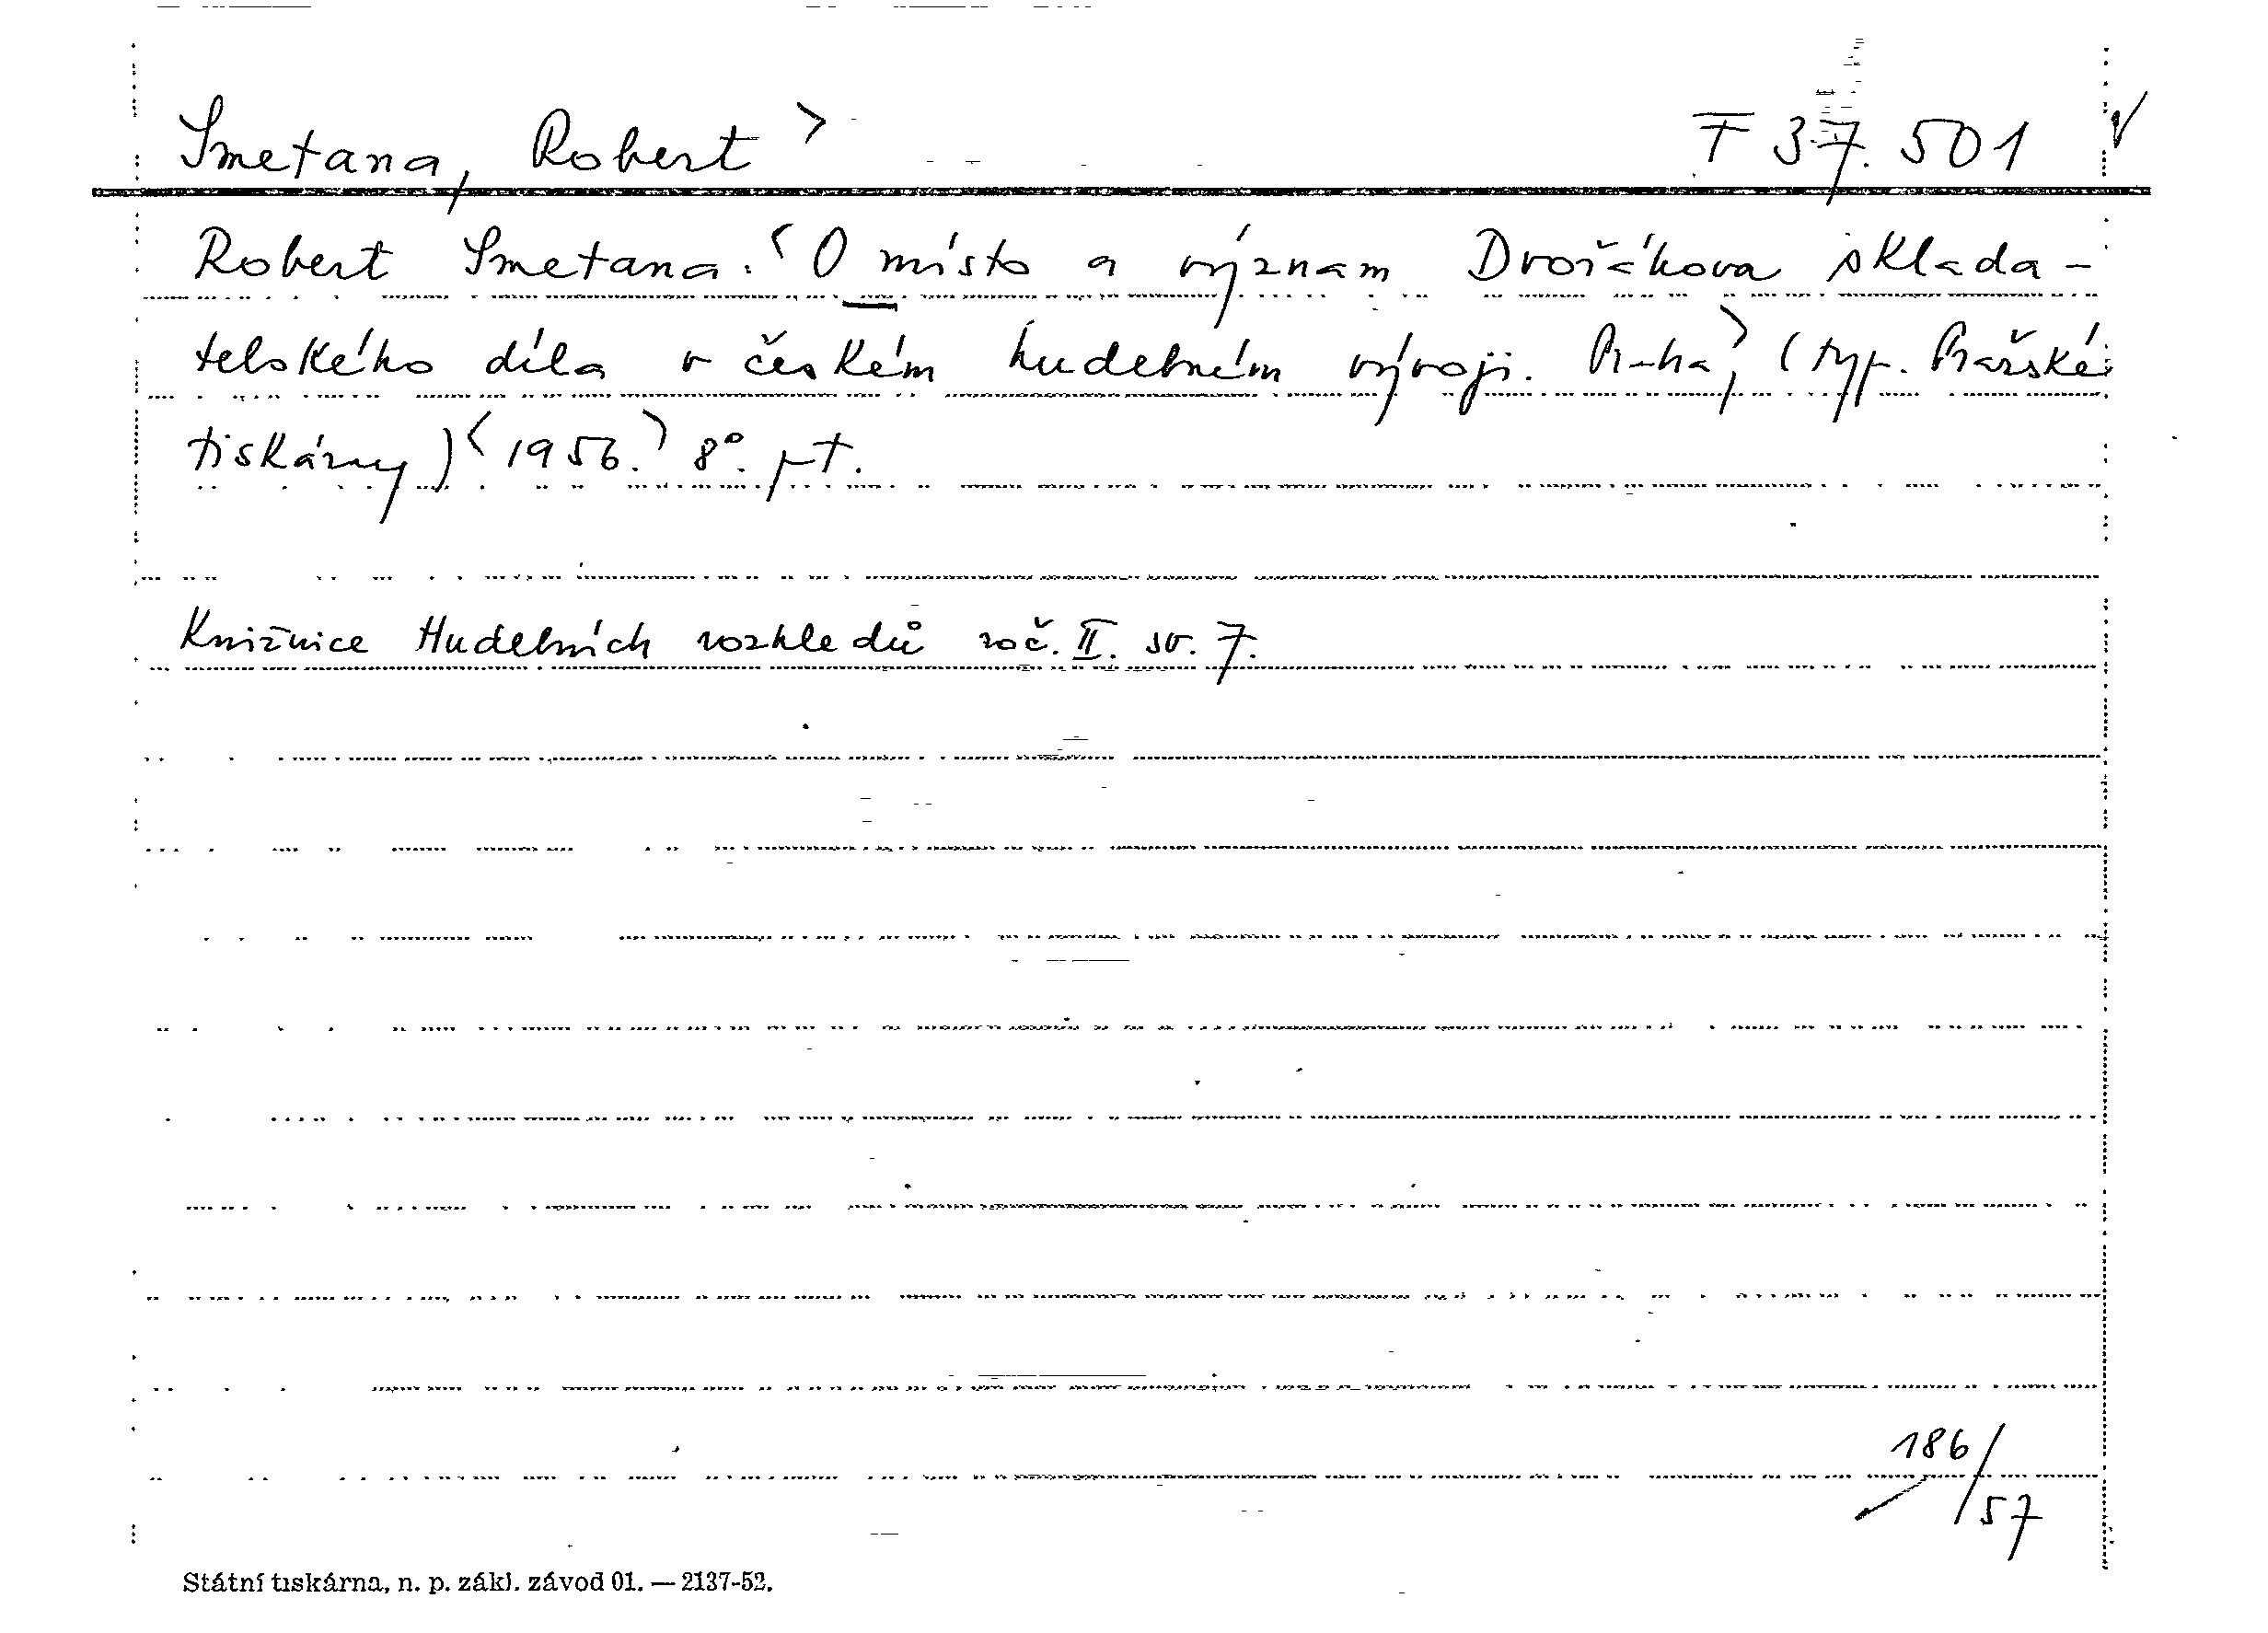 Smetana, Robert > F 37.501 √
Robert Smetana: < O místo a význam Dvořákova sklada-
telského díla v českém hudebním vývoji. Praha, > (typ. Pražské
tiskárny) < 1956. > 8°. pt.
Knižnice Hudebních rozhledů roč. II. sv. 7.
186/57
Státní tiskárna, n. p. zákl. závod 01. — 2137-52.